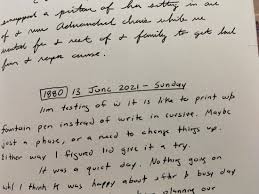 snapped a picture of her sitting in one
of & new Adirondack chairs while we
waited for & rest of & family to get back
from &
1880 13 June 2021 – Sunday
Iim testing of w it is like to print w/
fountain pen instead of write in cursive. Maybe
just a phase, or a need to change things up.
Either way I figured Iid give it a try.
It was a quiet day. Nothing going on
wh/ I think K was happy about after & busy day
planning our